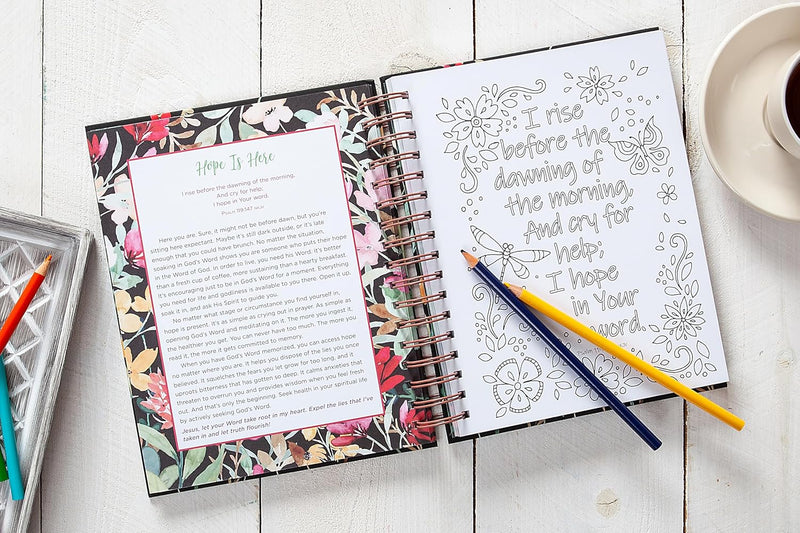 Hope Is Here
I rise before the dawning of the morning,
And cry for help;
I hope in Your word.
Psalm 119:147 NKJV
Here you are. Sure, it might not be before dawn, but you're
sitting here expectant. Maybe it's still dark outside, or it's late
enough that you could have brunch. No matter the situation,
soaking in God's Word shows you are someone who puts their hope
in the Word of God. In order to live, you need His Word. It's better
than a fresh cup of coffee, more sustaining than a hearty breakfast.
It's encouraging just to be in God's Word for a moment. Everything
you need for life and godliness is available to you there. Open it up,
soak it in, and ask His Spirit to guide you.
No matter what stage or circumstance you find yourself in,
hope is present. It's as simple as crying out in prayer. As simple as
opening God's Word and meditating on it. The more you ingest it,
the healthier you get. You can never have too much. The more you
read it, the more it gets committed to memory.
When you have God's Word memorized, you can access hope
no matter where you are. It helps you dispose of the lies you once
believed. It squelches the fears you let grow for too long, and it
uproots bitterness that has gotten so deep. It calms anxieties that
threaten to overrun you and provides wisdom when you feel fresh
out. And that's only the beginning. Seek health in your spiritual life
by actively seeking God's Word.
Jesus, let your Word take root in my heart. Expel the lies that I've
taken in and let truth flourish!
I rise
before the
dawning of
the morning,
And cry for
help;
I hope
in Your
word.
Psalm